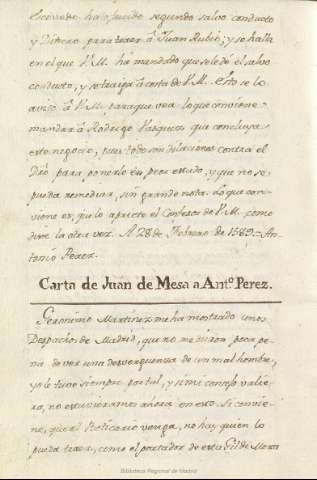 Escovedo ha ofrecido segundo salvo conducto
y Dinero para traer á Juan Rubio; y se halla
en el que V.M. ha mandado que se le dé el salvo
conducto, y se traiga á costa de V.M. Esto se lo
aviso á V.M. para que vea lo que conviene
mandar á Rodrigo Vasquez que concluya
este negocio, pues todo son dilaciones contra el
Dho para ponerle en peor estado; y que no se
pueda remediar, sin grande nota. Lo que con-
viene es, que lo apriete el Confesor de V.M. como
dixe la otra vez. A 28 de Febrero de 1589. An-
tonio Perez.
Carta de Juan de Mesa a Antº. Perez.
Geronimo Martinez me ha mostrado unos
Despachos de Madrid, que no me dieron poca pe-
na de ver una desverguenza de un mal hombre,
yo le tuve siempre por tal, y si mi consejo valie-
ra, no estuvieramos ahora en esto. Si convie-
ne, que el Boticario venga, no hay quien lo
pueda traer, como el portador de esta Gil de Mesa
Biblioteca Regional de Madrid